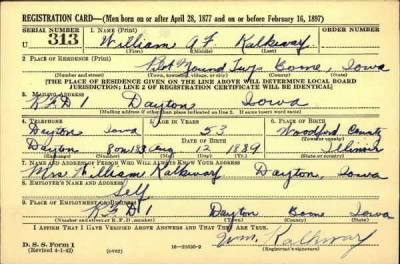 REGISTRATION CARD—(Men born on or after April 28, 1877 and on or before February 16, 1897)
SERIAL NUMBER
1. NAME (Print)
U 313
William A F Kalkwarf
(First) (Middle) (Last)
2. PLACE OF RESIDENCE (Print)
Pilot Mound Twp Boone, Iowa
(Number and street) (Town, township, village, or city) (County) (State)
[THE PLACE OF RESIDENCE GIVEN ON THE LINE ABOVE WILL DETERMINE LOCAL BOARD
JURISDICTION; LINE 2 OF REGISTRATION CERTIFICATE WILL BE IDENTICAL]
3. MAILING ADDRESS
R F D 1 Dayton Iowa
(Mailing address if other than place indicated on line 2. If same insert word same)
4. TELEPHONE
5. AGE IN YEARS
6. PLACE OF BIRTH
Dayton Iowa 53 Woodford County
DATE OF BIRTH
(Town or county)
Dayton 8 on 183 Aug 12 1889 Illinois
(Exchange) (Number) (Mo.) (Day) (Yr.) (State or country)
7. NAME AND ADDRESS OF PERSON WHO WILL ALWAYS KNOW YOUR ADDRESS
Mrs William Dayton, Iowa
8. EMPLOYER'S NAME AND ADDRESS
Self
9. PLACE OF EMPLOYMENT OR BUSINESS
R F D 1 Dayton Boone Iowa
(Number and street or R. F. D. number) (Town) (County) (State)
I AFFIRM THAT I HAVE VERIFIED ABOVE ANSWERS AND THAT THEY ARE TRUE.
D. S. S. Form 1
(Revised 4-1-42) (over) 16—21630-2
Wm.
(Registrant's signature)